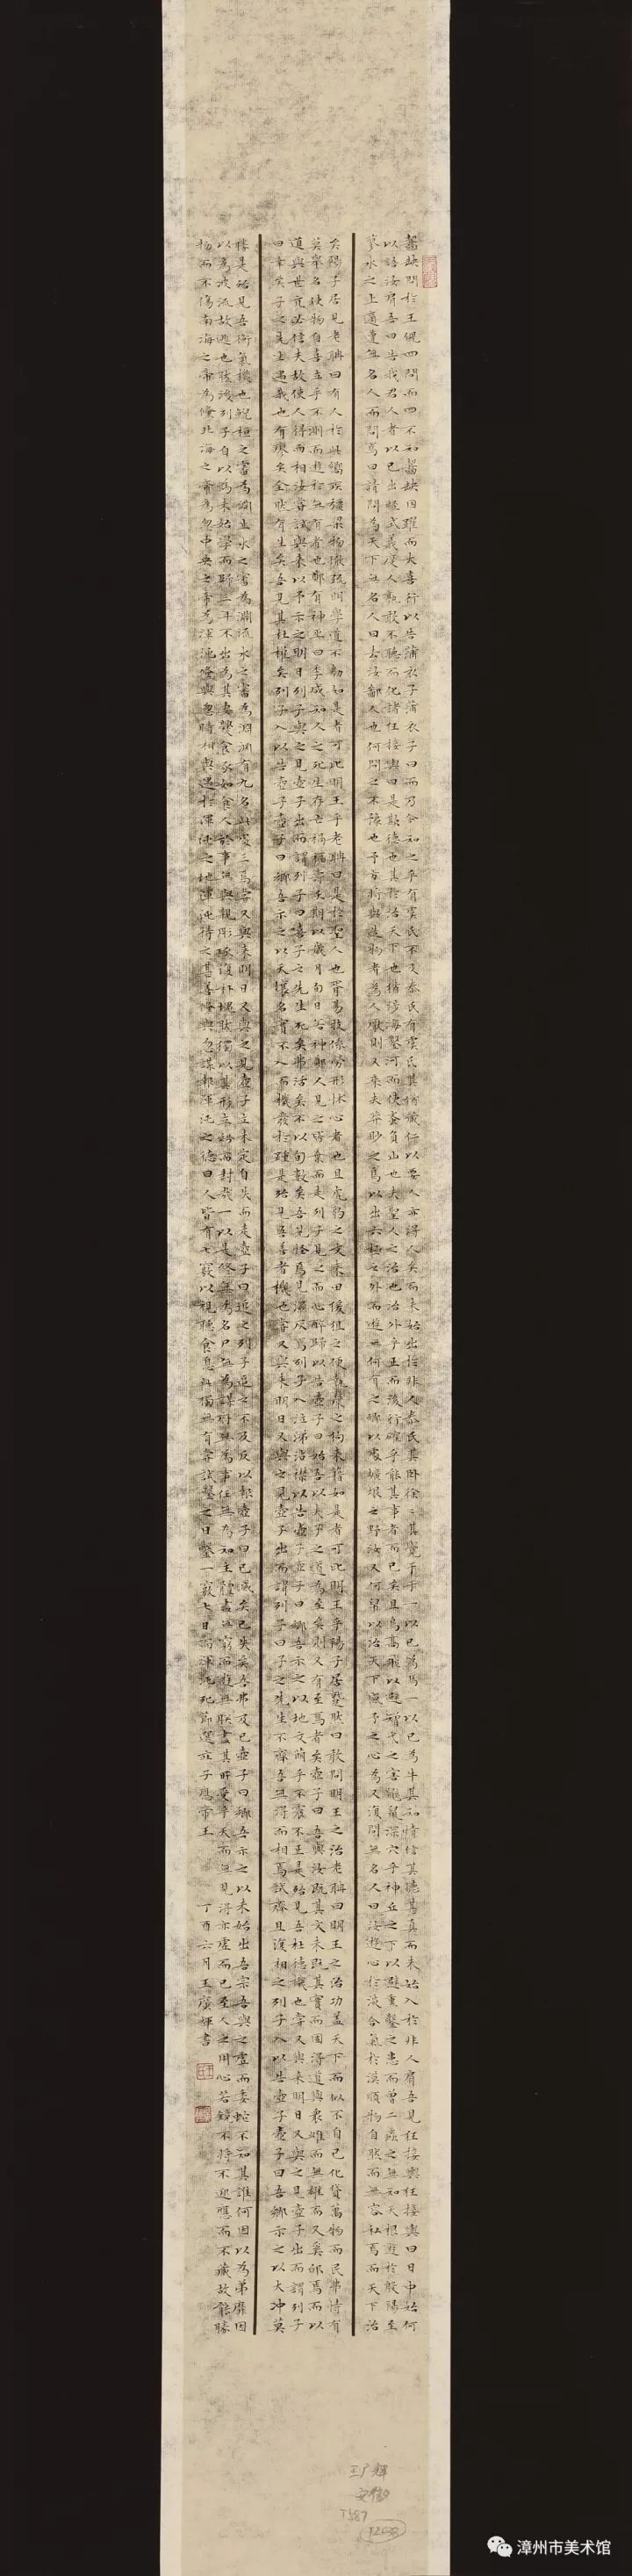 齧缺問於王倪四問而四不知齧缺因躍而大喜行以告蒲衣子蒲衣子曰而乃今知之乎有虞氏不及泰氏有虞氏其猶藏仁以要人亦得人矣而未始出於非人泰氏其臥徐〻其覺于于一以己為馬一以己為牛其知情信其德甚真而未始入於非人肩吾見狂接輿狂接輿曰日中始何
以語汝肩吾曰告我君人者以己出經式義度人孰敢不聽而化諸狂接輿曰是欺德也其於治天下也猶涉海鑿河而使蚉負山也夫聖人之治也治外乎正而後行確乎能其事者而已矣且鳥高飛以避矰弋之害鼷鼠深穴乎神丘之下以避熏鑿之患而曾二蟲之無知天根遊於殷陽至
蓼水之上適遭無名人而問焉曰請問為天下無名人曰去汝鄙人也何問之不豫也予方將與造物者為人厭則又乘夫莽眇之鳥以出六極之外而遊無何有之鄉以處壙埌之野汝又何帠以治天下感予之心為又復問無名人曰汝遊心於淡合氣於漠順物自然而無容私焉而天下治
矣陽子居見老聃曰有人於此嚮疾彊梁物徹疏明學道不勌如是者可比明王乎老聃曰是於聖人也胥易技係勞形怵心者也且虎豹之文來田猨狙之便執斄之狗來藉如是者可比明王乎陽子居蹵然曰敢問明王之治老聃曰明王之治功蓋天下而似不自己化貸萬物而民弗恃有
莫舉名使物自喜立乎不測而遊於無有者也鄭有神巫曰季咸知人之死生存亡禍福壽夭期以歲月旬日若神鄭人見之皆棄而走列子見之而心醉歸以告壺子曰始吾以夫子之道為至矣則又有至焉者矣壺子曰吾與汝既其文未既其實而固得道與眾雌而無雄而又奚卵焉而以
道與世亢必信夫故使人得而相汝嘗試與來以予示之明日列子與之見壺子出而謂列子曰嘻子之先生死矣弗活矣不以旬數矣吾見怪焉見濕灰焉列子入泣涕沾襟以告壺子壺子曰鄉吾示之以地文萌乎不震不正是殆見吾杜德機也嘗又與來明日又與之見壺子出而謂列子
曰幸矣子之先生遇我也有瘳矣全然有生矣吾見其杜權矣列子入以告壺子壺子曰鄉吾示之以天壤名實不入而機發於踵是殆見吾善者機也嘗又與來明日又與之見壺子出而謂列子曰子之先生不齊吾無得而相焉試齊且復相之列子入以告壺子壺子曰吾鄉示之以太沖莫
勝是殆見吾衡氣機也鯢桓之審為淵止水之審為淵流水之審為淵淵有九名此處三焉嘗又與來明日又與之見壺子立未定自失而走壺子曰追之列子追之不及反以報壺子曰已滅矣已失矣吾弗及已壺子曰鄉吾示之以未始出吾宗吾與之虛而委蛇不知其誰何因以為弟靡因
以為波流故逃也然後列子自以為未始學而歸三年不出為其妻爨食豕如食人於事無與親彫琢復朴塊然獨以其形立紛而封哉一以是終無為名尸無為謀府無為事任無為知主體盡無窮而遊無朕盡其所受乎天而無見得亦虛而已至人之用心若鏡不將不迎應而不藏故能勝
物而不傷南海之帝為儵北海之帝為忽中央之帝為渾沌儵與忽時相與遇於渾沌之地渾沌待之甚善儵與忽謀報渾沌之德曰人皆有七竅以視聽食息此獨無有嘗試鑿之日鑿一竅七日而渾沌死節選莊子應帝王 丁酉六月王廣輝書
王广辉
安徽
T587
漳州市美术馆